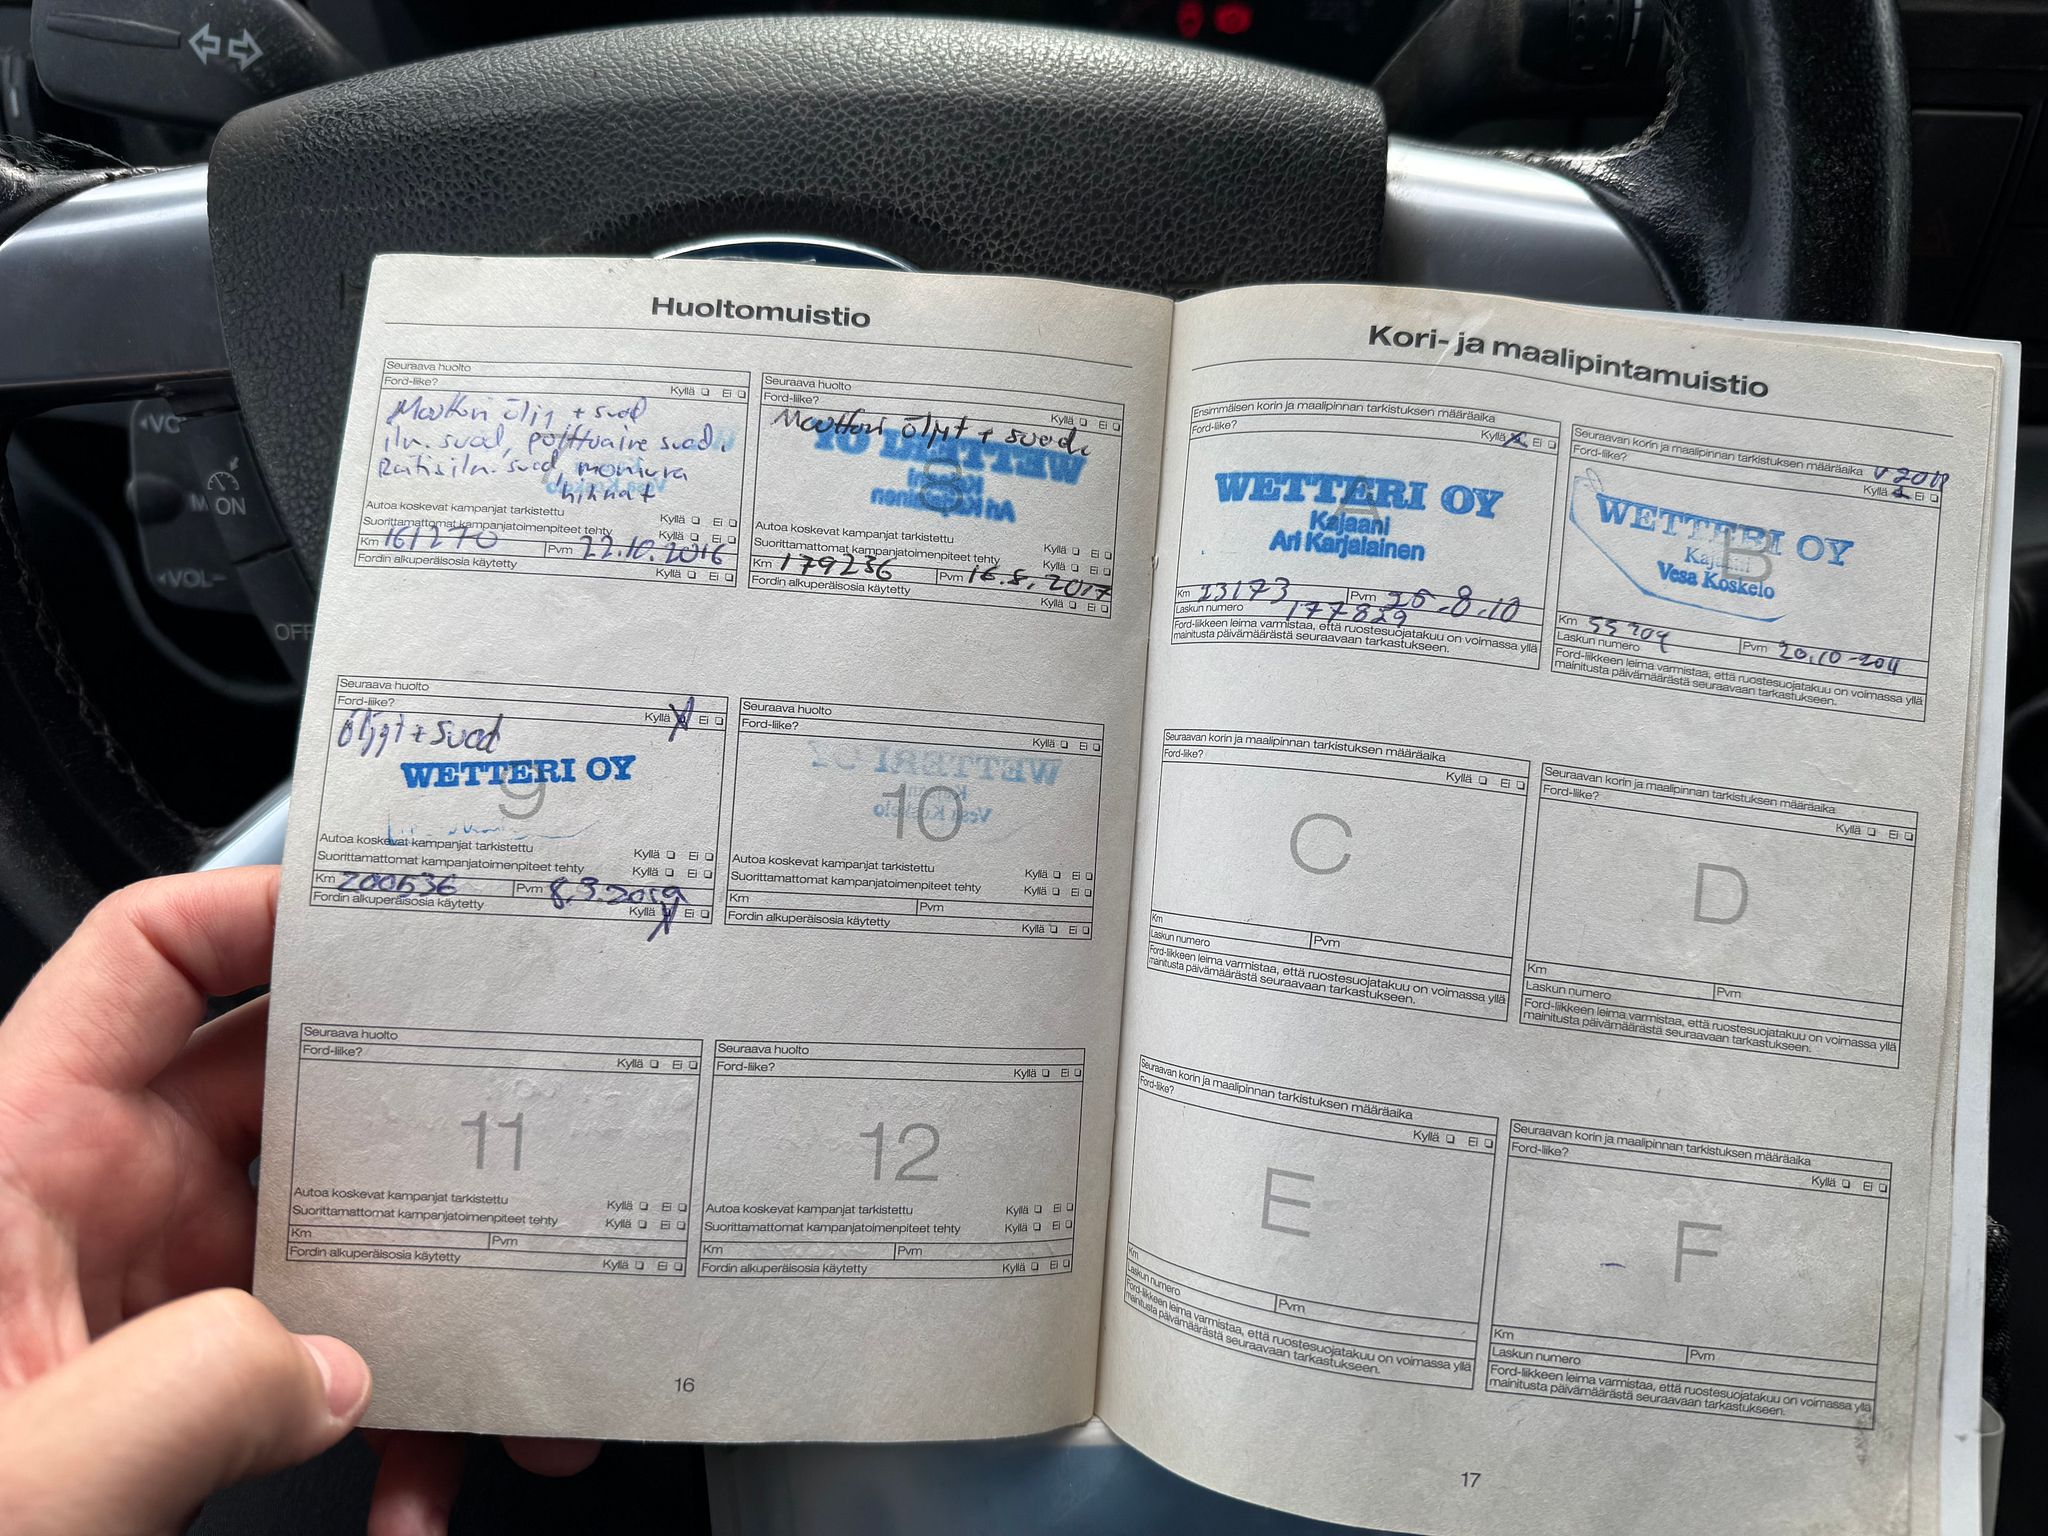 Huoltomuistio
Seuraava huolto
Ford-liike?
Kyllä Ei
Moottori öljy + suod
ilm. suod, polttoaine suod.
Raitisilm. suod, moniura
hihnat
Autoa koskevat kampanjat tarkistettu
Kyllä Ei
Suorittamattomat kampanjatoimenpiteet tehty
Kyllä Ei
Km 161270 Pvm 22.10.2016
Fordin alkuperäisosia käytetty
Kyllä Ei
Seuraava huolto
Ford-liike?
Kyllä Ei
Moottori öljyt + suod.
8
WETTERI OY
Kajaani
Ari Karjalainen
Autoa koskevat kampanjat tarkistettu
Kyllä Ei
Suorittamattomat kampanjatoimenpiteet tehty
Kyllä Ei
Km 179236 Pvm 16.8.2017
Fordin alkuperäisosia käytetty
Kyllä Ei
Seuraava huolto
Ford-liike?
Kyllä Ei
Öljyt + suod
WETTERI OY
9
Autoa koskevat kampanjat tarkistettu
Kyllä Ei
Suorittamattomat kampanjatoimenpiteet tehty
Kyllä Ei
Km 200636 Pvm 8.3.2019
Fordin alkuperäisosia käytetty
Kyllä Ei
Seuraava huolto
Ford-liike?
Kyllä Ei
WETTERI OY
Vesa Koskelo
10
Autoa koskevat kampanjat tarkistettu
Kyllä Ei
Suorittamattomat kampanjatoimenpiteet tehty
Kyllä Ei
Km Pvm
Fordin alkuperäisosia käytetty
Kyllä Ei
Seuraava huolto
Ford-liike?
Kyllä Ei
11
Autoa koskevat kampanjat tarkistettu
Kyllä Ei
Suorittamattomat kampanjatoimenpiteet tehty
Kyllä Ei
Km Pvm
Fordin alkuperäisosia käytetty
Kyllä Ei
Seuraava huolto
Ford-liike?
Kyllä Ei
12
Autoa koskevat kampanjat tarkistettu
Kyllä Ei
Suorittamattomat kampanjatoimenpiteet tehty
Kyllä Ei
Km Pvm
Fordin alkuperäisosia käytetty
Kyllä Ei
16
Kori- ja maalipintamuistio
Ensimmäisen korin ja maalipinnan tarkistuksen määräaika
Ford-liike?
Kyllä Ei
A
WETTERI OY
Kajaani
Ari Karjalainen
Km 23173 Pvm 26.8.10
Laskun numero 177829
Ford-liikkeen leima varmistaa, että ruostesuojatakuu on voimassa yllä
mainitusta päivämäärästä seuraavaan tarkastukseen.
Seuraavan korin ja maalipinnan tarkistuksen määräaika
Ford-liike?
Kyllä Ei
B
WETTERI OY
Kajaani
Vesa Koskelo
Km 55209 Pvm 20.10-2011
Laskun numero
Ford-liikkeen leima varmistaa, että ruostesuojatakuu on voimassa yllä
mainitusta päivämäärästä seuraavaan tarkastukseen.
Seuraavan korin ja maalipinnan tarkistuksen määräaika
Ford-liike?
Kyllä Ei
C
Km
Laskun numero Pvm
Ford-liikkeen leima varmistaa, että ruostesuojatakuu on voimassa yllä
mainitusta päivämäärästä seuraavaan tarkastukseen.
Seuraavan korin ja maalipinnan tarkistuksen määräaika
Ford-liike?
Kyllä Ei
D
Km
Laskun numero Pvm
Ford-liikkeen leima varmistaa, että ruostesuojatakuu on voimassa yllä
mainitusta päivämäärästä seuraavaan tarkastukseen.
Seuraavan korin ja maalipinnan tarkistuksen määräaika
Ford-liike?
Kyllä Ei
E
Km
Laskun numero Pvm
Ford-liikkeen leima varmistaa, että ruostesuojatakuu on voimassa yllä
mainitusta päivämäärästä seuraavaan tarkastukseen.
Seuraavan korin ja maalipinnan tarkistuksen määräaika
Ford-liike?
Kyllä Ei
F
Km
Laskun numero Pvm
Ford-liikkeen leima varmistaa, että ruostesuojatakuu on voimassa yllä
mainitusta päivämäärästä seuraavaan tarkastukseen.
17
M ON
VOL-
OFF